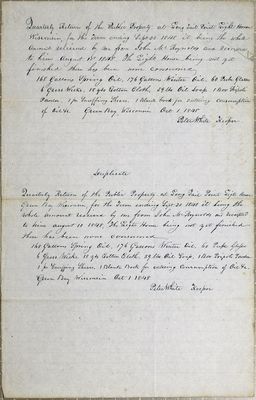 Quarterly Return of the Public Property at Long Tail Point Light House
Wisconsin, for the Term ending Sept 30 1848 it being the whole
amount received by me from John McReynolds and
to him August 1st 1848. The Light House being not yet
finished there has been none consumed
168 Gallons Spring Oil, 176 Gallons Winter Oil, 60
6 Gross Wicks 18 yds Cotton Cloth, 29 lbs Oil Soap, 1 Box
Powder, 1 pr Scissors, 1 blank book for entering consumption
of Oil &c. Green Bay Wisconsin Oct 1 1848
Peter White Keeper
Duplicate
Quarterly Return of the Public Property at Long Tail Point Light House
Green Bay, Wisconsin, for the Term ending Sept 30 1848 it being the
whole Amount received by me from John McReynolds as receipted
to him August 1st 1848, The Light House being not yet finished
there has been none consumed
168 Gallons Spring Oil, 176 Gallons Winter Oil, 60
6 Gross Wicks 18 yds Cotton Cloth, 29 lbs Oil Soap, 1 Box
1 pr 1 Blank Book for entering Consumption of Oil &c.
Green Bay Wisconsin Oct 1 1848
Peter White Keeper